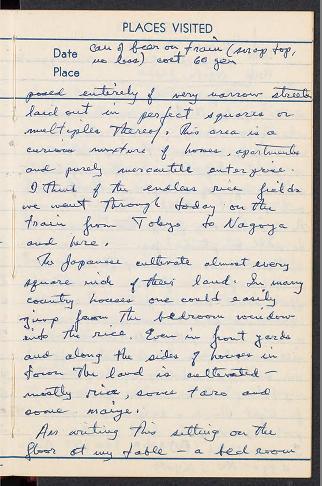 PLACES VISITED
Date can of beer on train (snap top,
no less) cost 60 yen
Place
posed entirely of very narrow streets
laid out in perfect squares or
multiples thereof. This area is a
curious mixture of homes, apartments
and purely mercantile enterprise.
I think of the endless rice fields
we went through today on the
train from Tokyo to Nagoya
and here.
The Japanese cultivate almost every
square inch of their land. In many
country houses one could easily
jump from the bedroom window
into the rice. Even in front yards
and along the sides of houses in
town the land is cultivated —
mostly rice, some taro and
some maize.
Am writing this sitting on the
floor at my table — a bed room